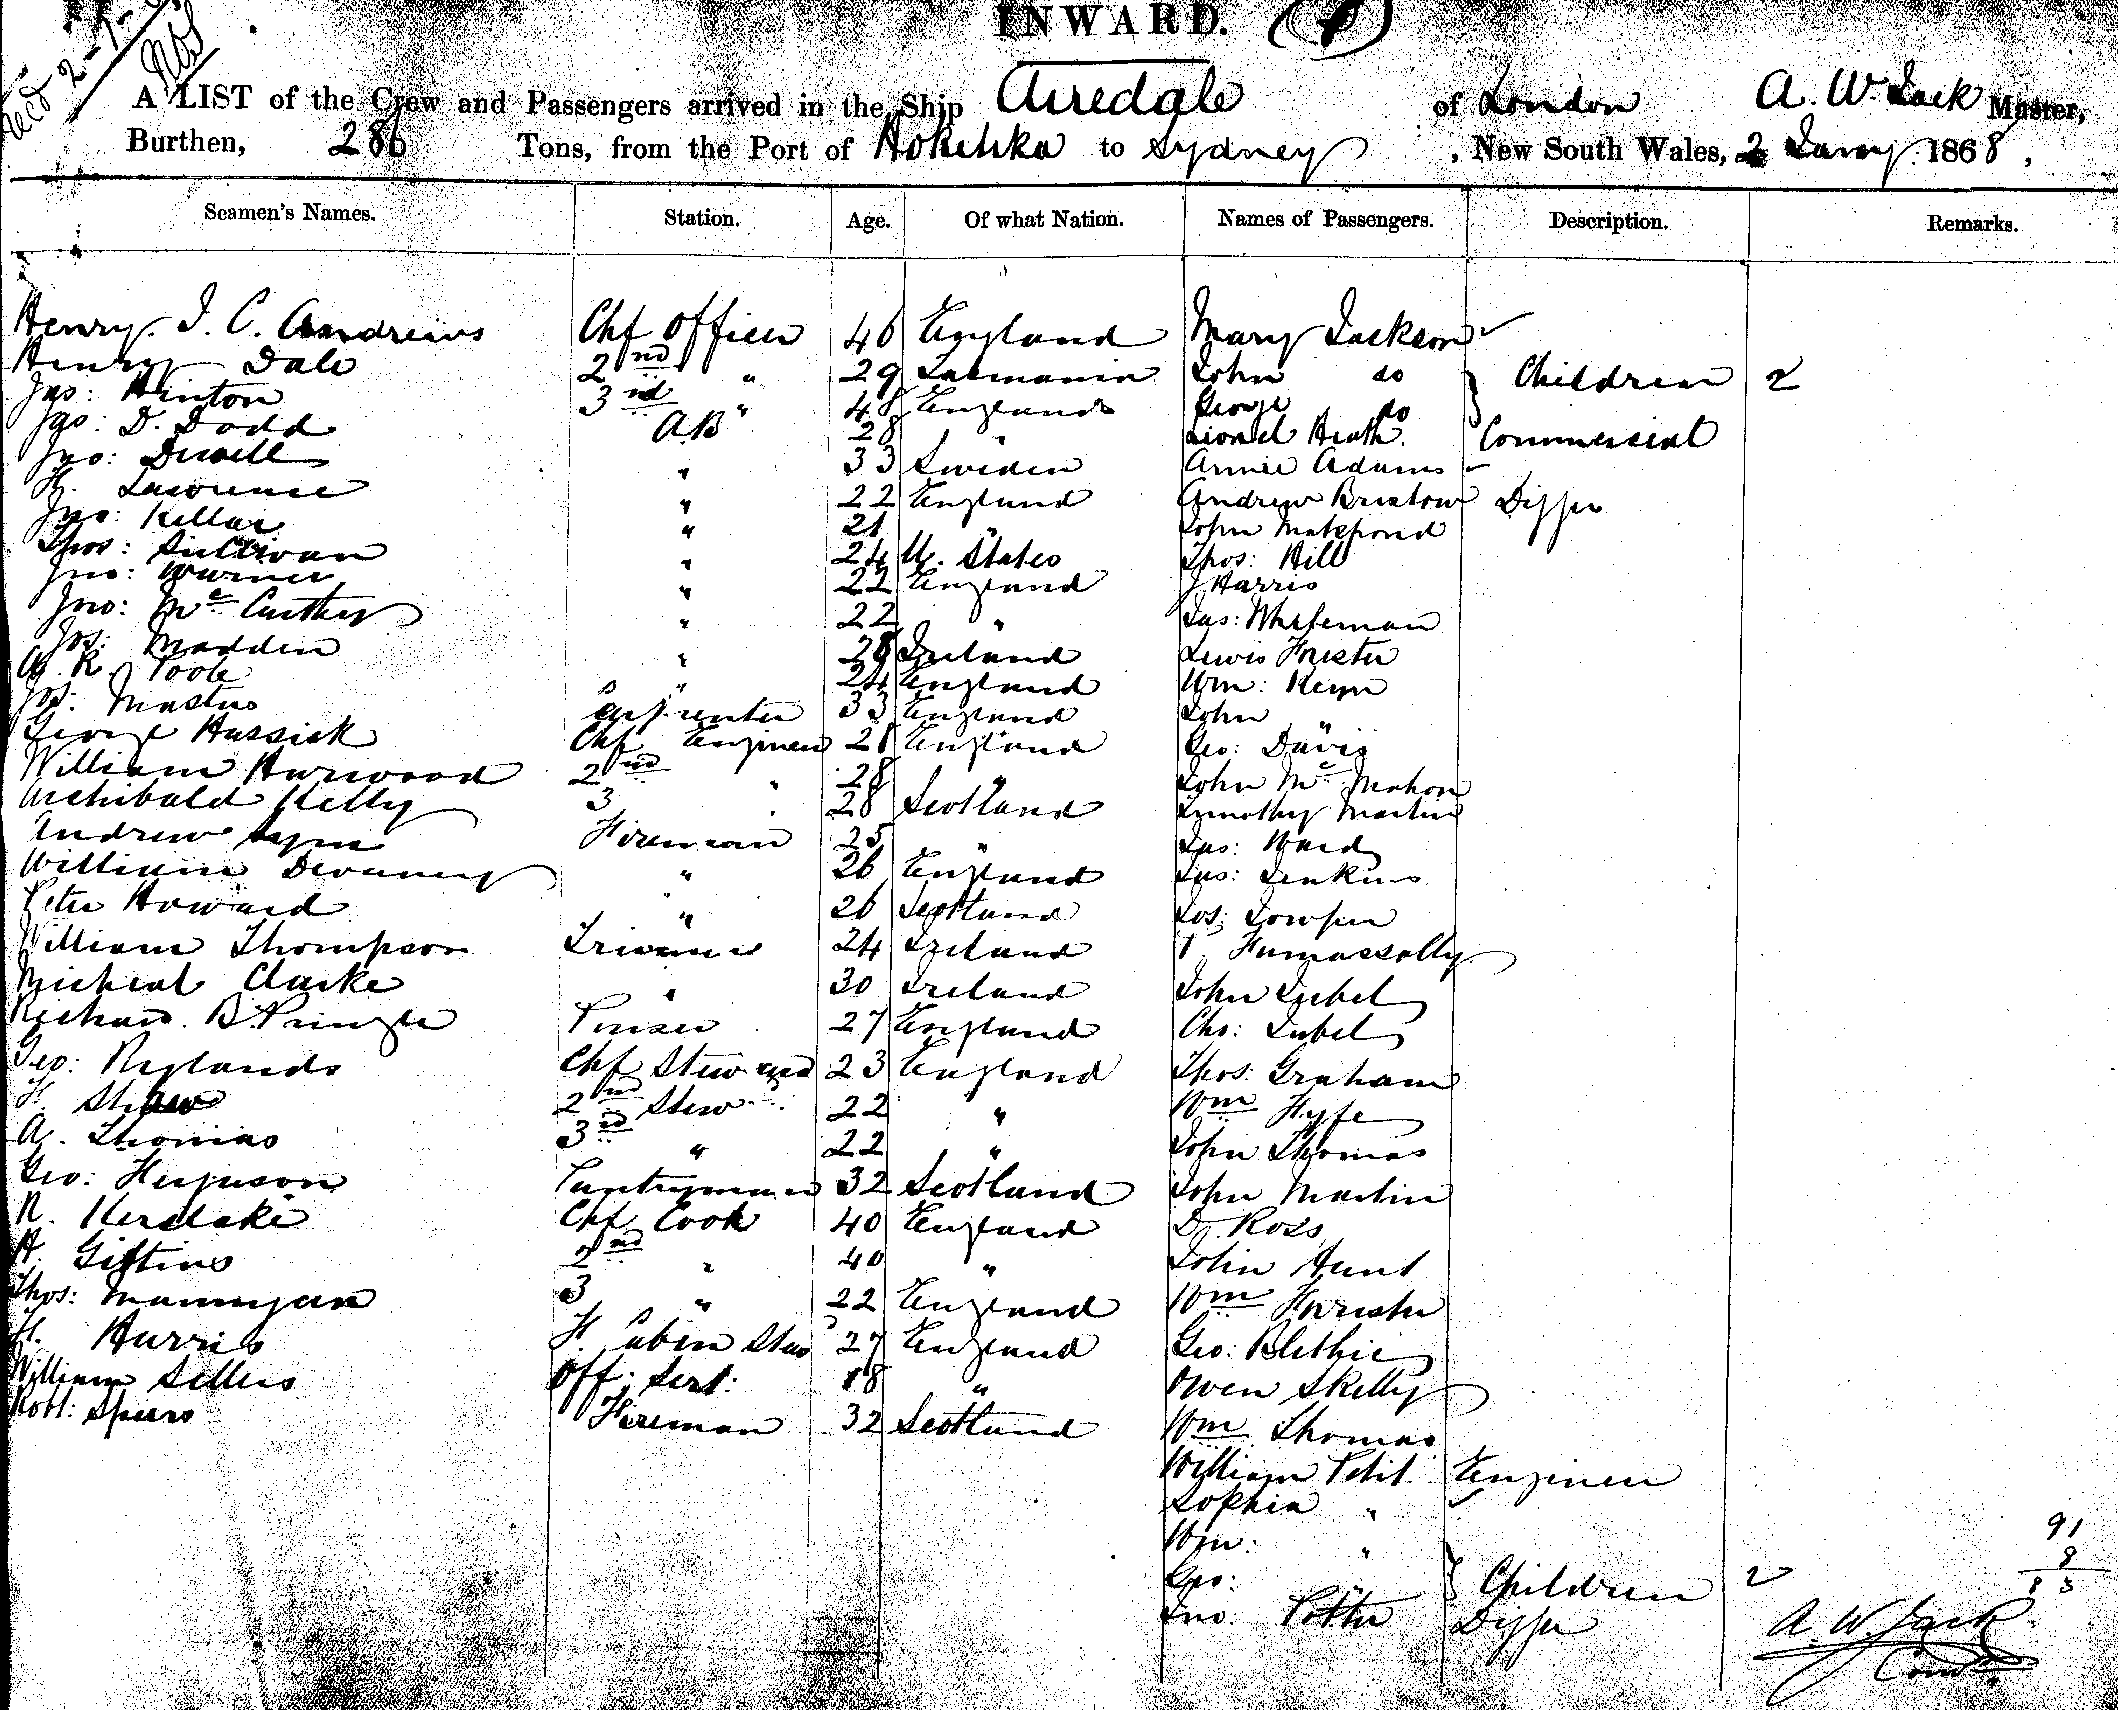 INWARD.
A LIST of the Crew and Passengers arrived in the Ship Airedale of London A. W. Jack Master,
Burthen, 286 Tons, from the Port of Hokitika to Sydney, New South Wales, 2 Jany 1868,
Seamen's Names. Station. Age. Of what Nation. Names of Passengers. Description. Remarks.
Henry J. C. Andrews Chf Officer 46 England Mary Jackson
Henry Dale 2nd " 29 Tasmania John do Children 2
Jas: Hinton 3rd " 48 England George do
Jas: D. Dodd AB 28 " Lionel Heath. Commercial
Jno: Duvell " 33 Sweden Annie Adams
H. Lawrence " 22 England Andrew Bristow Digger
Jno: Kellar " 21 " John Matchpond
Thos: Sullivan " 24 U. States Thos: Hill
Jno: Warner " 22 England J Harris
Jno: McCarthy " 22 " Jas: Whiteman
Jos: Madden " 28 Ireland Lewis Forester
G. R. Poole " 24 England Wm: Keyn
Jos: Masters Carpenter 33 England John "
George Hassick Chf Engineer 28 England Geo: Davis
William Harwood 2nd " 28 " John McMahon
Archibald Kelly 3 " 28 Scotland Timothy Martin
Andrew Sym Fireman 25 " Jas: Ward
William Devanny " 26 England Jas: Jenkins
Peter Howard " 26 Scotland Jos: Dowsen
William Thompson Trimmer 24 Ireland Fumassolly
Micheal Clarke " 30 Ireland John Zubel
Richard B. Pringle Purser 27 England Chs: Zubel
Geo: Rylands Chf Steward 23 England Thos: Graham
H. Shaw 2nd Stew 22 " Wm Fyfe
A. Thomas 3rd " 22 " John Thomas
Geo: Ferguson Pantryman 32 Scotland John Martin
R. Kerslake Chf Cook 40 England D. Ross
H. Giftins 2nd " 40 " John Hunt
Thos: Mannyan 3 " 22 England Wm Forester
H. Harris F. Cabin Stew 27 England Geo: Blethie
William Sellers Off: Servt: 18 " Owen Skelly
Robt: Speers Fireman 32 Scotland Wm Thomas
William Petit Engineer
Sophia "
Wm: "
Geo: " Children 2
Jno: Potter Digger
91
8
83
A. W. Jack
Comdr